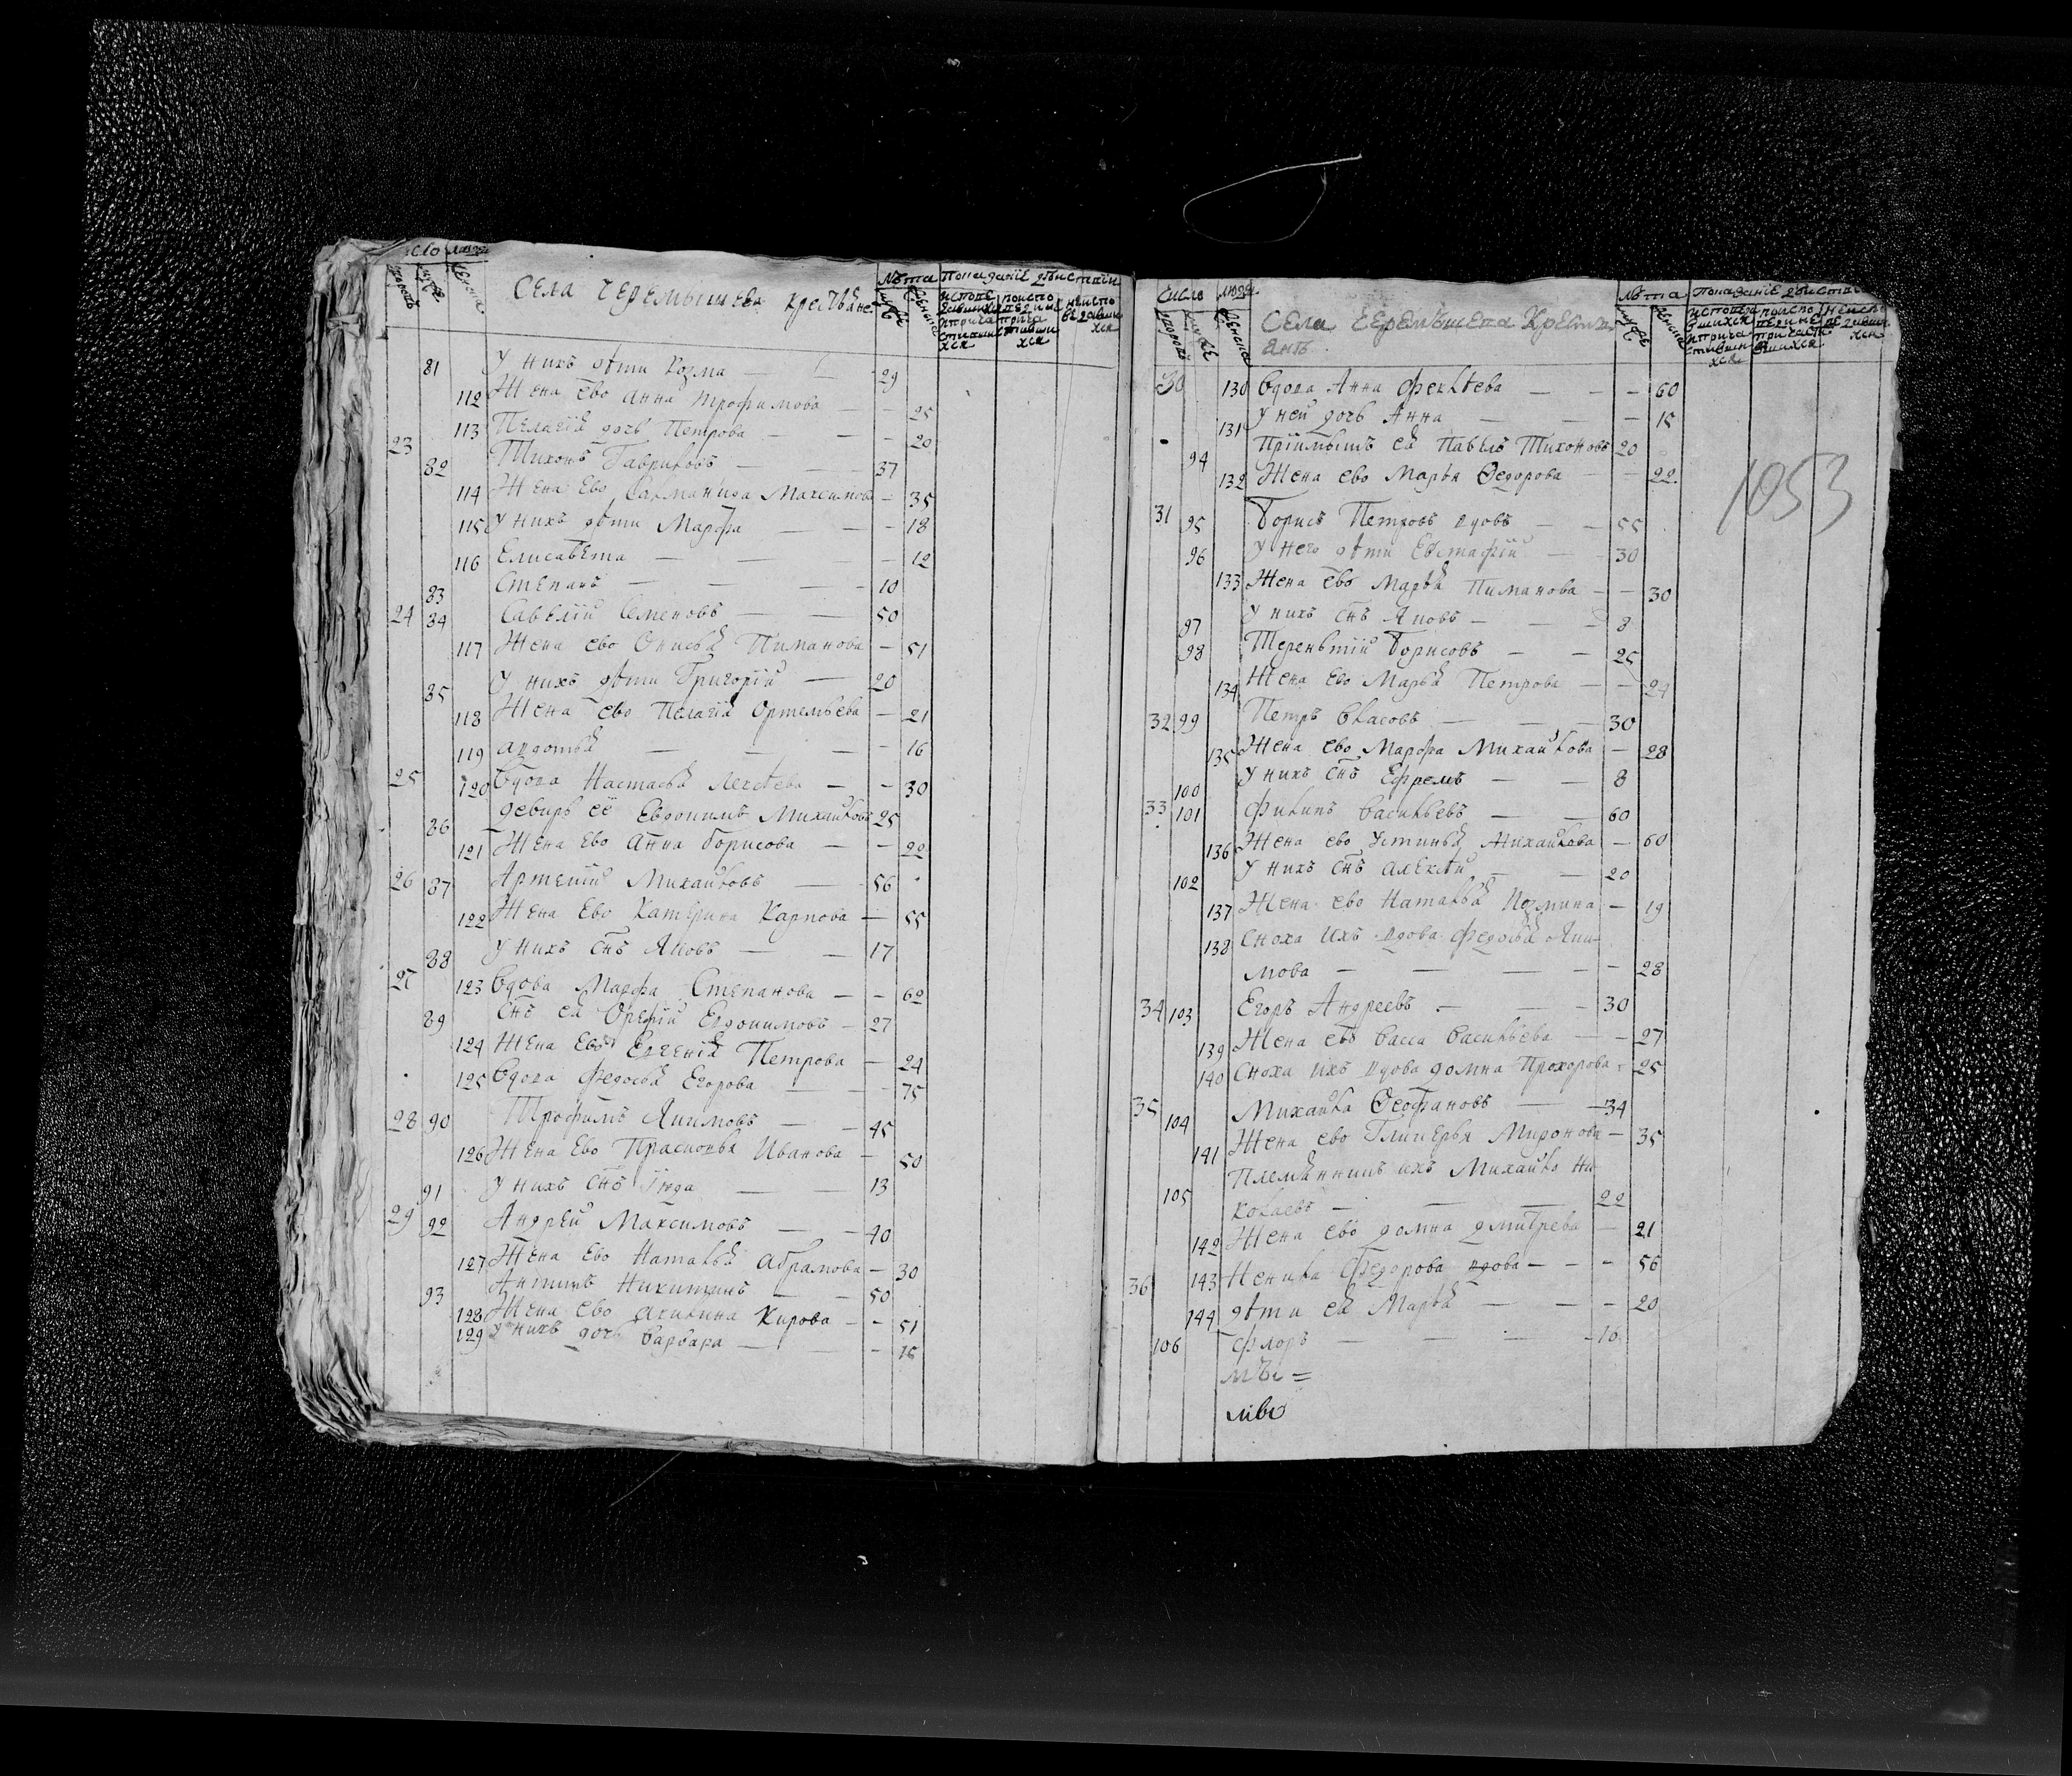 Села Черемышева крестьяне
Лѣта Показаніе дѣистви
81 У нихъ дѣти Козма — 29
112 Жена ево Анна Трофимова — 25
113 Пелагія дочь Петрова — 20
23 82 Тихонъ Гавриловъ — 37
114 Жена ево Максимова — 35
115 У нихъ дѣти Марфа — 18
116 Елисавета — 12
83 Степанъ — 10
24 84 Савелій Семеновъ — 50
117 Жена ево Онисья Пиманова — 51
85 У нихъ дѣти Григорій — 20
118 Жена ево Пелагія Ортемьева — 21
119 авдотья — 16
25 120 Вдова Настасья Алексѣева — 30
86 деверь её Евдокимъ Михаиловъ 25
121 Жена ево Анна Борисова — 22
26 87 Артемій Михаиловъ — 56
122 Жена Ево Катерина Карпова — 55
88 У нихъ снъ Яковъ — 17
27 123 Вдова Марфа Степанова — 60
89 Снъ ея Орефій Евдокимовъ — 27
124 Жена Ево Евгенія Петрова — 24
125 Вдова Федосья Егорова — 75
28 90 Трофимъ Якимовъ — 45
126 Жена Ево Прасковья Иванова — 50
91 У нихъ снъ Іюда — 13
29 92 Андрей Максимовъ — 40
127 Жена Ево Наталья Абрамова — 30
93 Антипъ Никитинъ — 50
128 Жена ево акилина Кирова — 51
129 У нихъ дочь Варвара — 16
Число людеи
Села Черемышева Крестья
янъ
Лѣта Показаніе дѣистви
1053
30 130 Вдова Анна Фекльева — 60
131 У ней дочь Анна — 15
94 Пріимышъ ея Павелъ Тихоновъ 20
132 Жена ево Марья Ѳедорова — 22
31 95 Борисъ Петровъ вдовъ — 55
96 У него дѣти Евстафій — 30
133 Жена ево Марья Пиманова — 30
97 У нихъ снъ Яковъ — 8
98 Тереньтій Борисовъ — 25
134 Жена Ево Марья Петрова — 24
32 99 Петръ Власовъ — 30
135 Жена ево Марфа Михаилова — 28
100 У нихъ снъ Ефремъ — 8
33 101 Филипъ Васильевъ — 60
136 Жена ево Устинья Михаилова — 60
102 У нихъ снъ Алексѣй — 20
137 Жена ево Наталья Козмина — 19
138 Сноха ихъ вдова Федосья Яки
мова — 28
34 103 Егоръ Андреевъ — 30
139 Жена евъ Васса Васильева — 27
140 Сноха ихъ вдова домна Прохорова 25
35 104 Михаила Ѳеофановъ — 34
141 Жена ево Гликерья Миронова — 35
105 Племянникъ ихъ Михаила Ни
колаевъ — 22
142 Жена ево домна дмитрева — 21
36 143 Ненила Федорова вдова — 56
144 дѣти ея Марья — 20
106 Флоръ — 16